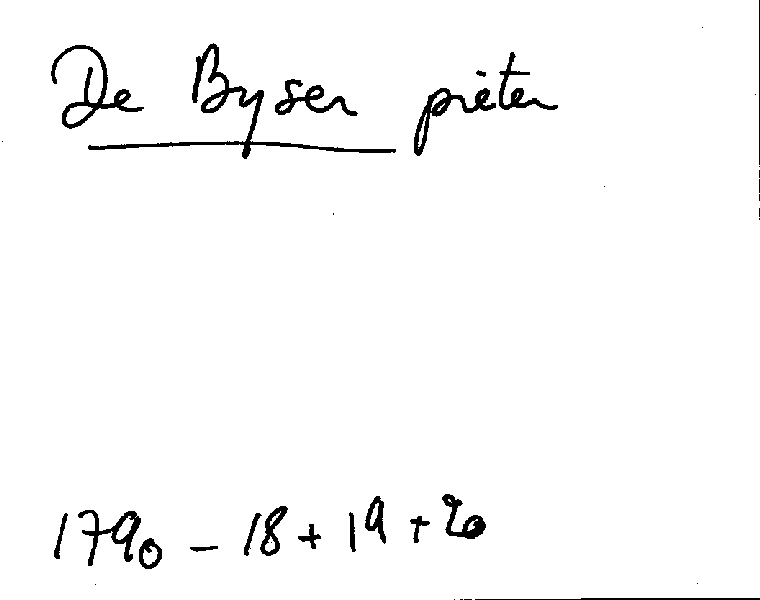 De Byser pieter
1790 - 18 + 19 + 20